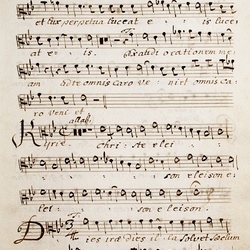 et lux perpetua luceat e - is luce
at e - is. Exaudi orationem me
am ad te omnis caro ve niet omnis ca
ro veni et
allab:
Kyrie chri - ste elei
son eleison e
lei - son eleison.
Dies irae dies il la solvet saeclum